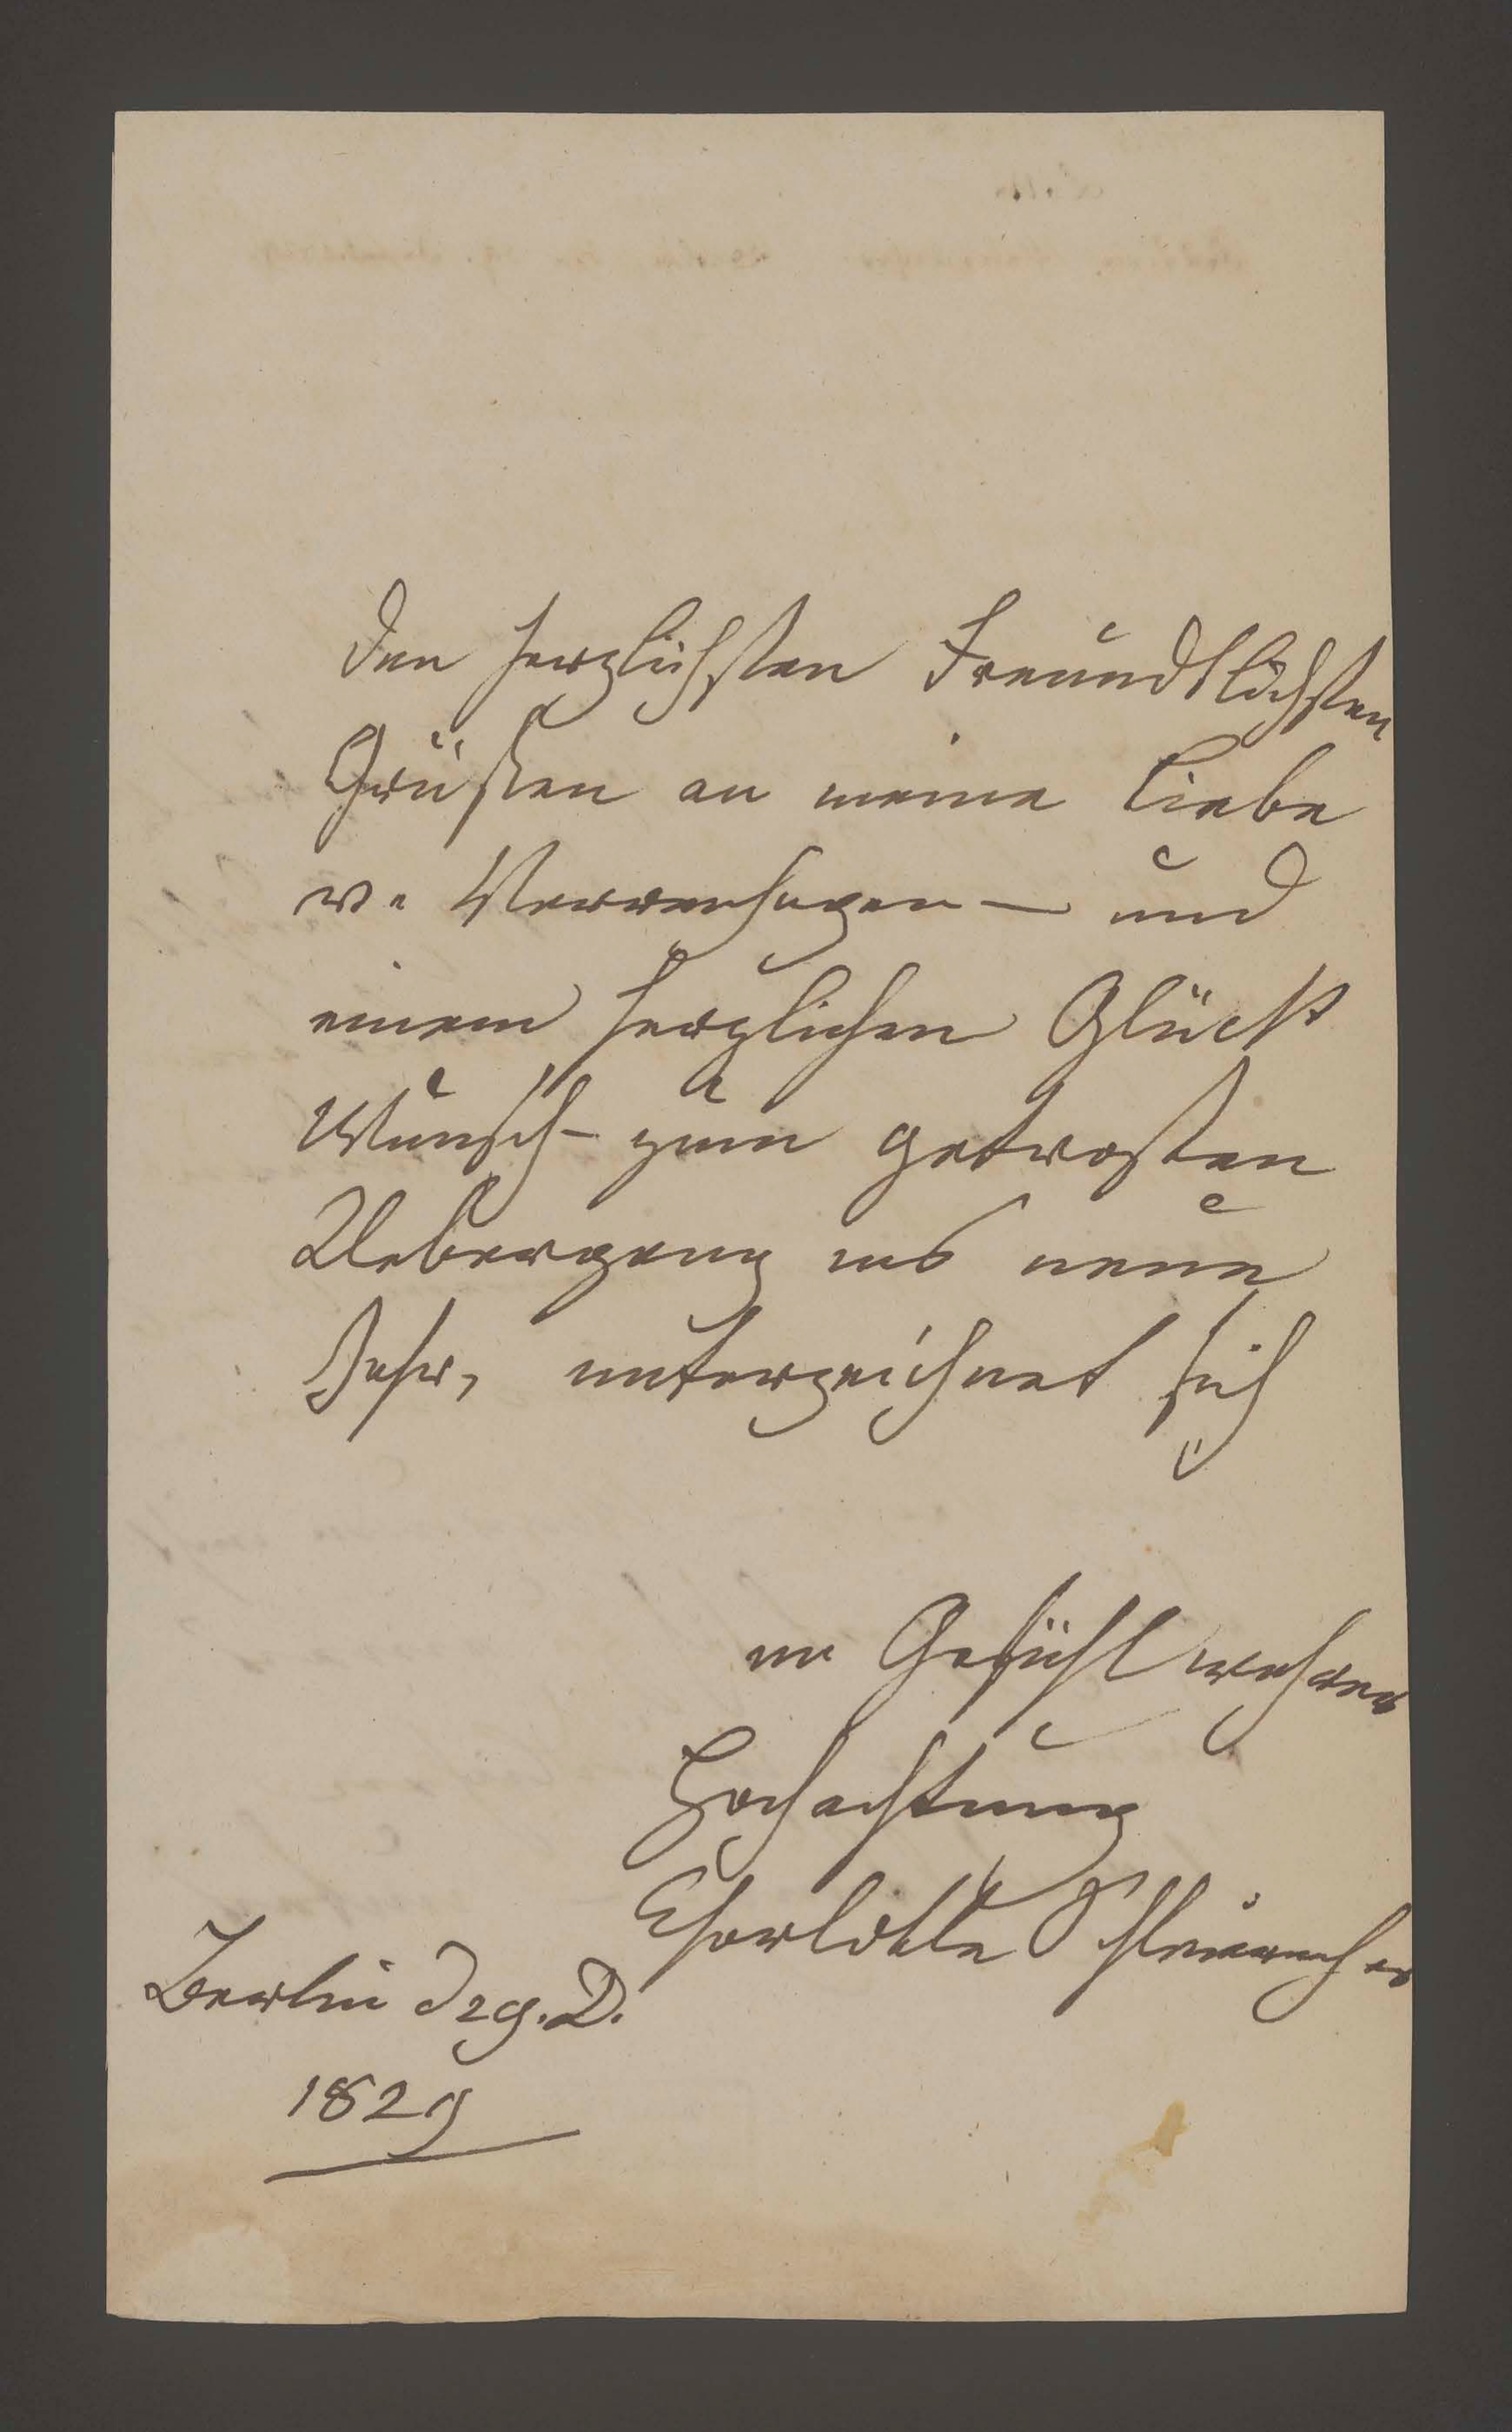 den herzlichsten Freundtlichsten
Grüßen an meine liebe
v. Varrenhagen — und
einem herzlichen Glück
Wunsch – zum getrosten
Uebergang ins neue
Jahr, unterzeichnet sich
im Gefühl wahrer
Hochachtung
Charlotte Schleiermacher
Berlin d 29. D.
1829